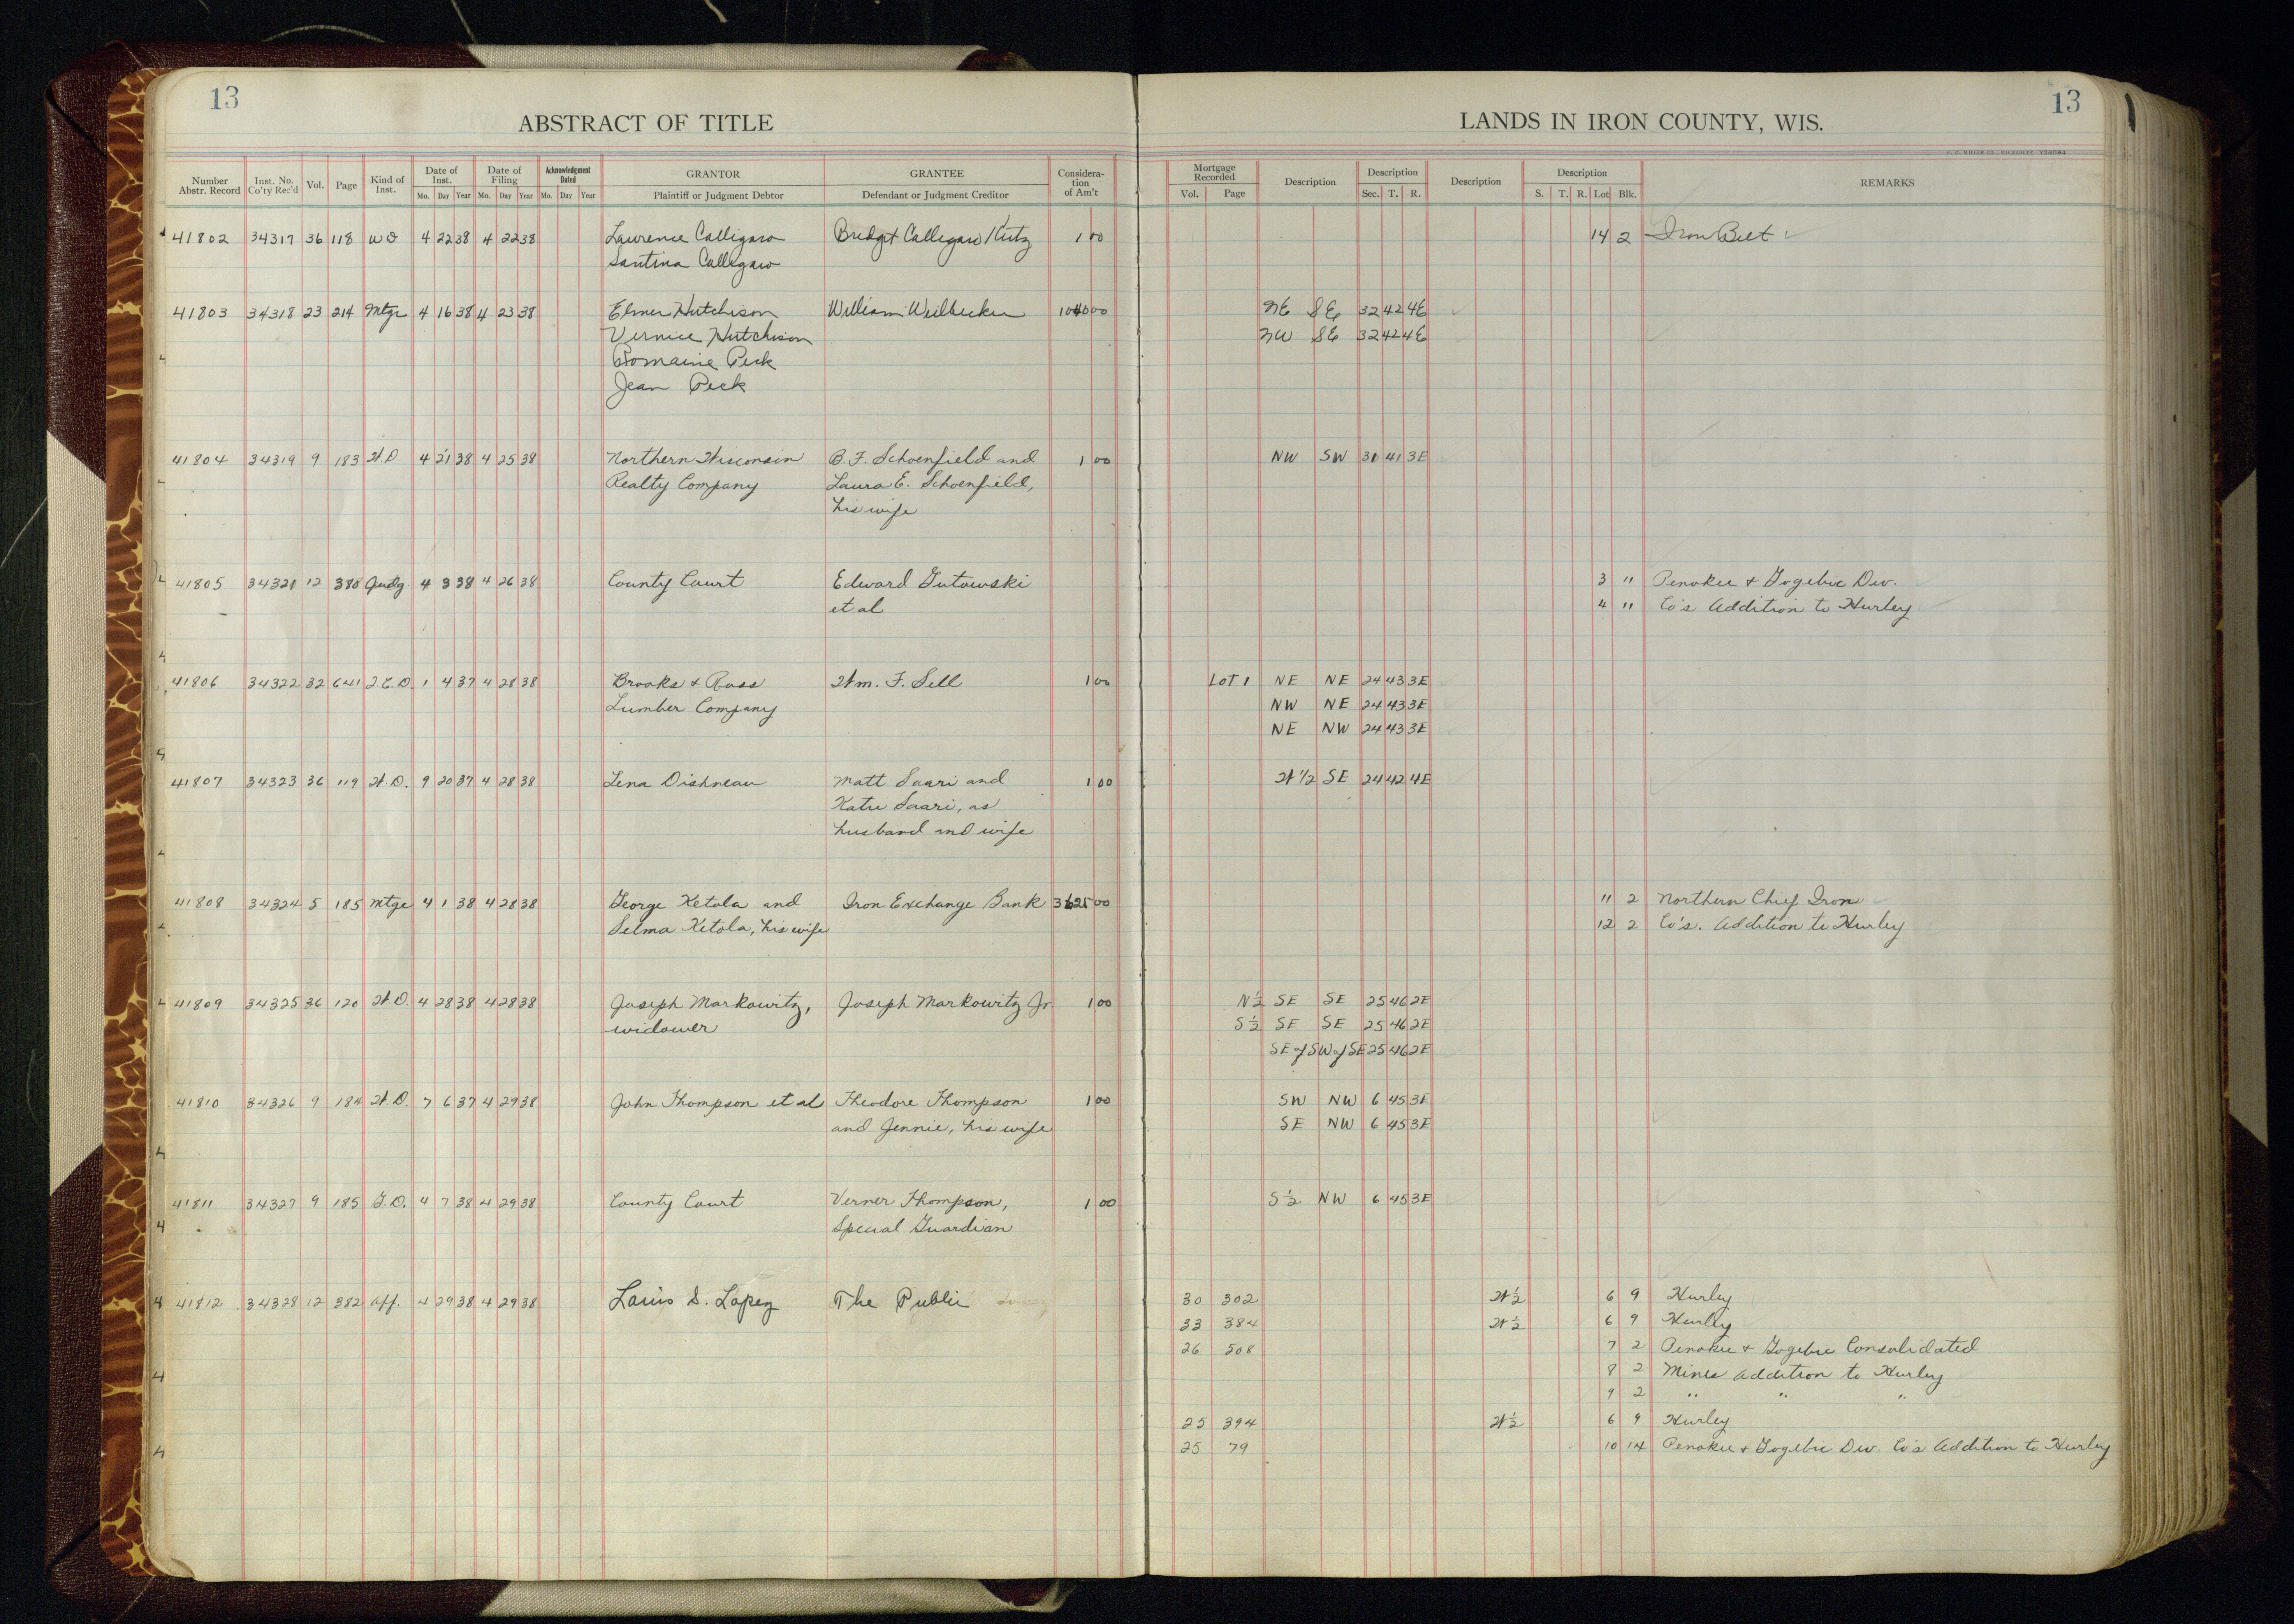 13
ABSTRACT OF TITLE
Number Abstr. Record Inst. No. Co'ty Rec'd Vol. Page Kind of Inst. Date of Inst. Mo. Day Year Date of Filing Mo. Day Year Acknowledgment Dated Mo. Day Year GRANTOR Plaintiff or Judgment Debtor GRANTEE Defendant or Judgment Creditor Consideration of Am't
41802 34317 36 118 WD 4 22 38 4 22 38 Lawrence Calligaro Bridget Calligaro Kutz 1 00
Santina Calligaro
41803 34318 23 214 Mtge 4 16 38 4 23 38 Elmer Hutchison William Weilbecker 00
Vernice Hutchison
Romaine Peck
Jean Peck
41804 34319 9 183 W.D 4 21 38 4 25 38 Northern Wisconsin B.F. Schoenfield and 1 00
Realty Company Laura E. Schoenfield,
his wife
41805 34321 12 380 Judg. 4 3 38 4 26 38 County Court Edward Gutowski
et al
41806 34322 32 641 Q.C.D. 1 4 37 4 28 38 Brooks & Ross Wm. F. Sell 1 00
Lumber Company
41807 34323 36 119 W.D. 9 20 37 4 28 38 Lena Dishneau Matt Saari and 1 00
Katie Saari, as
husband and wife
41808 34324 5 185 Mtge 4 1 38 4 28 38 George Ketola and Iron Exchange Bank 00
Selma Ketola, his wife
41809 34325 36 120 W.D. 4 28 38 4 28 38 Joseph Markowitz, Joseph Markowitz Jr. 1 00
widower
41810 34326 9 184 W.D. 7 6 37 4 29 38 John Thompson et al Theodore Thompson 1 00
and Jennie, his wife
41811 34327 9 185 G.D. 4 7 38 4 29 38 County Court Verner Thompson, 1 00
Special Guardian
41812 34328 12 382 Aff. 4 29 38 4 29 38 Louis S. Lopez The Public
13
LANDS IN IRON COUNTY, WIS.
Mortgage Recorded Vol. Page Description Description Sec. T. R. Description Description S. T. R. Lot Blk. REMARKS
14 2 Iron Belt
NE SE 32 42 4E
NW SE 32 42 4E
NW SW 31 41 3E
3 " Penokee & Gogebic Dev.
4 " Co's Addition to Hurley
Lot 1 NE NE 24 43 3E
NW NE 24 43 3E
NE NW 24 43 3E
W 1/2 SE 24 42 4E
11 2 Northern Chief Iron
12 2 Co's. Addition to Hurley
N½ SE SE 25 46 2E
S½ SE SE 25 46 2E
SE of SW of SE 25 46 2E
SW NW 6 45 3E
SE NW 6 45 3E
S½ NW 6 45 3E
30 302 W½ 6 9 Hurley
33 384 W½ 6 9 Hurley
26 508 7 2 Penokee & Gogebic Consolidated
8 2 Mines Addition to Hurley
9 2 " " "
25 394 W½ 6 9 Hurley
25 79 10 14 Penokee & Gogebic Dev. Co's Addition to Hurley